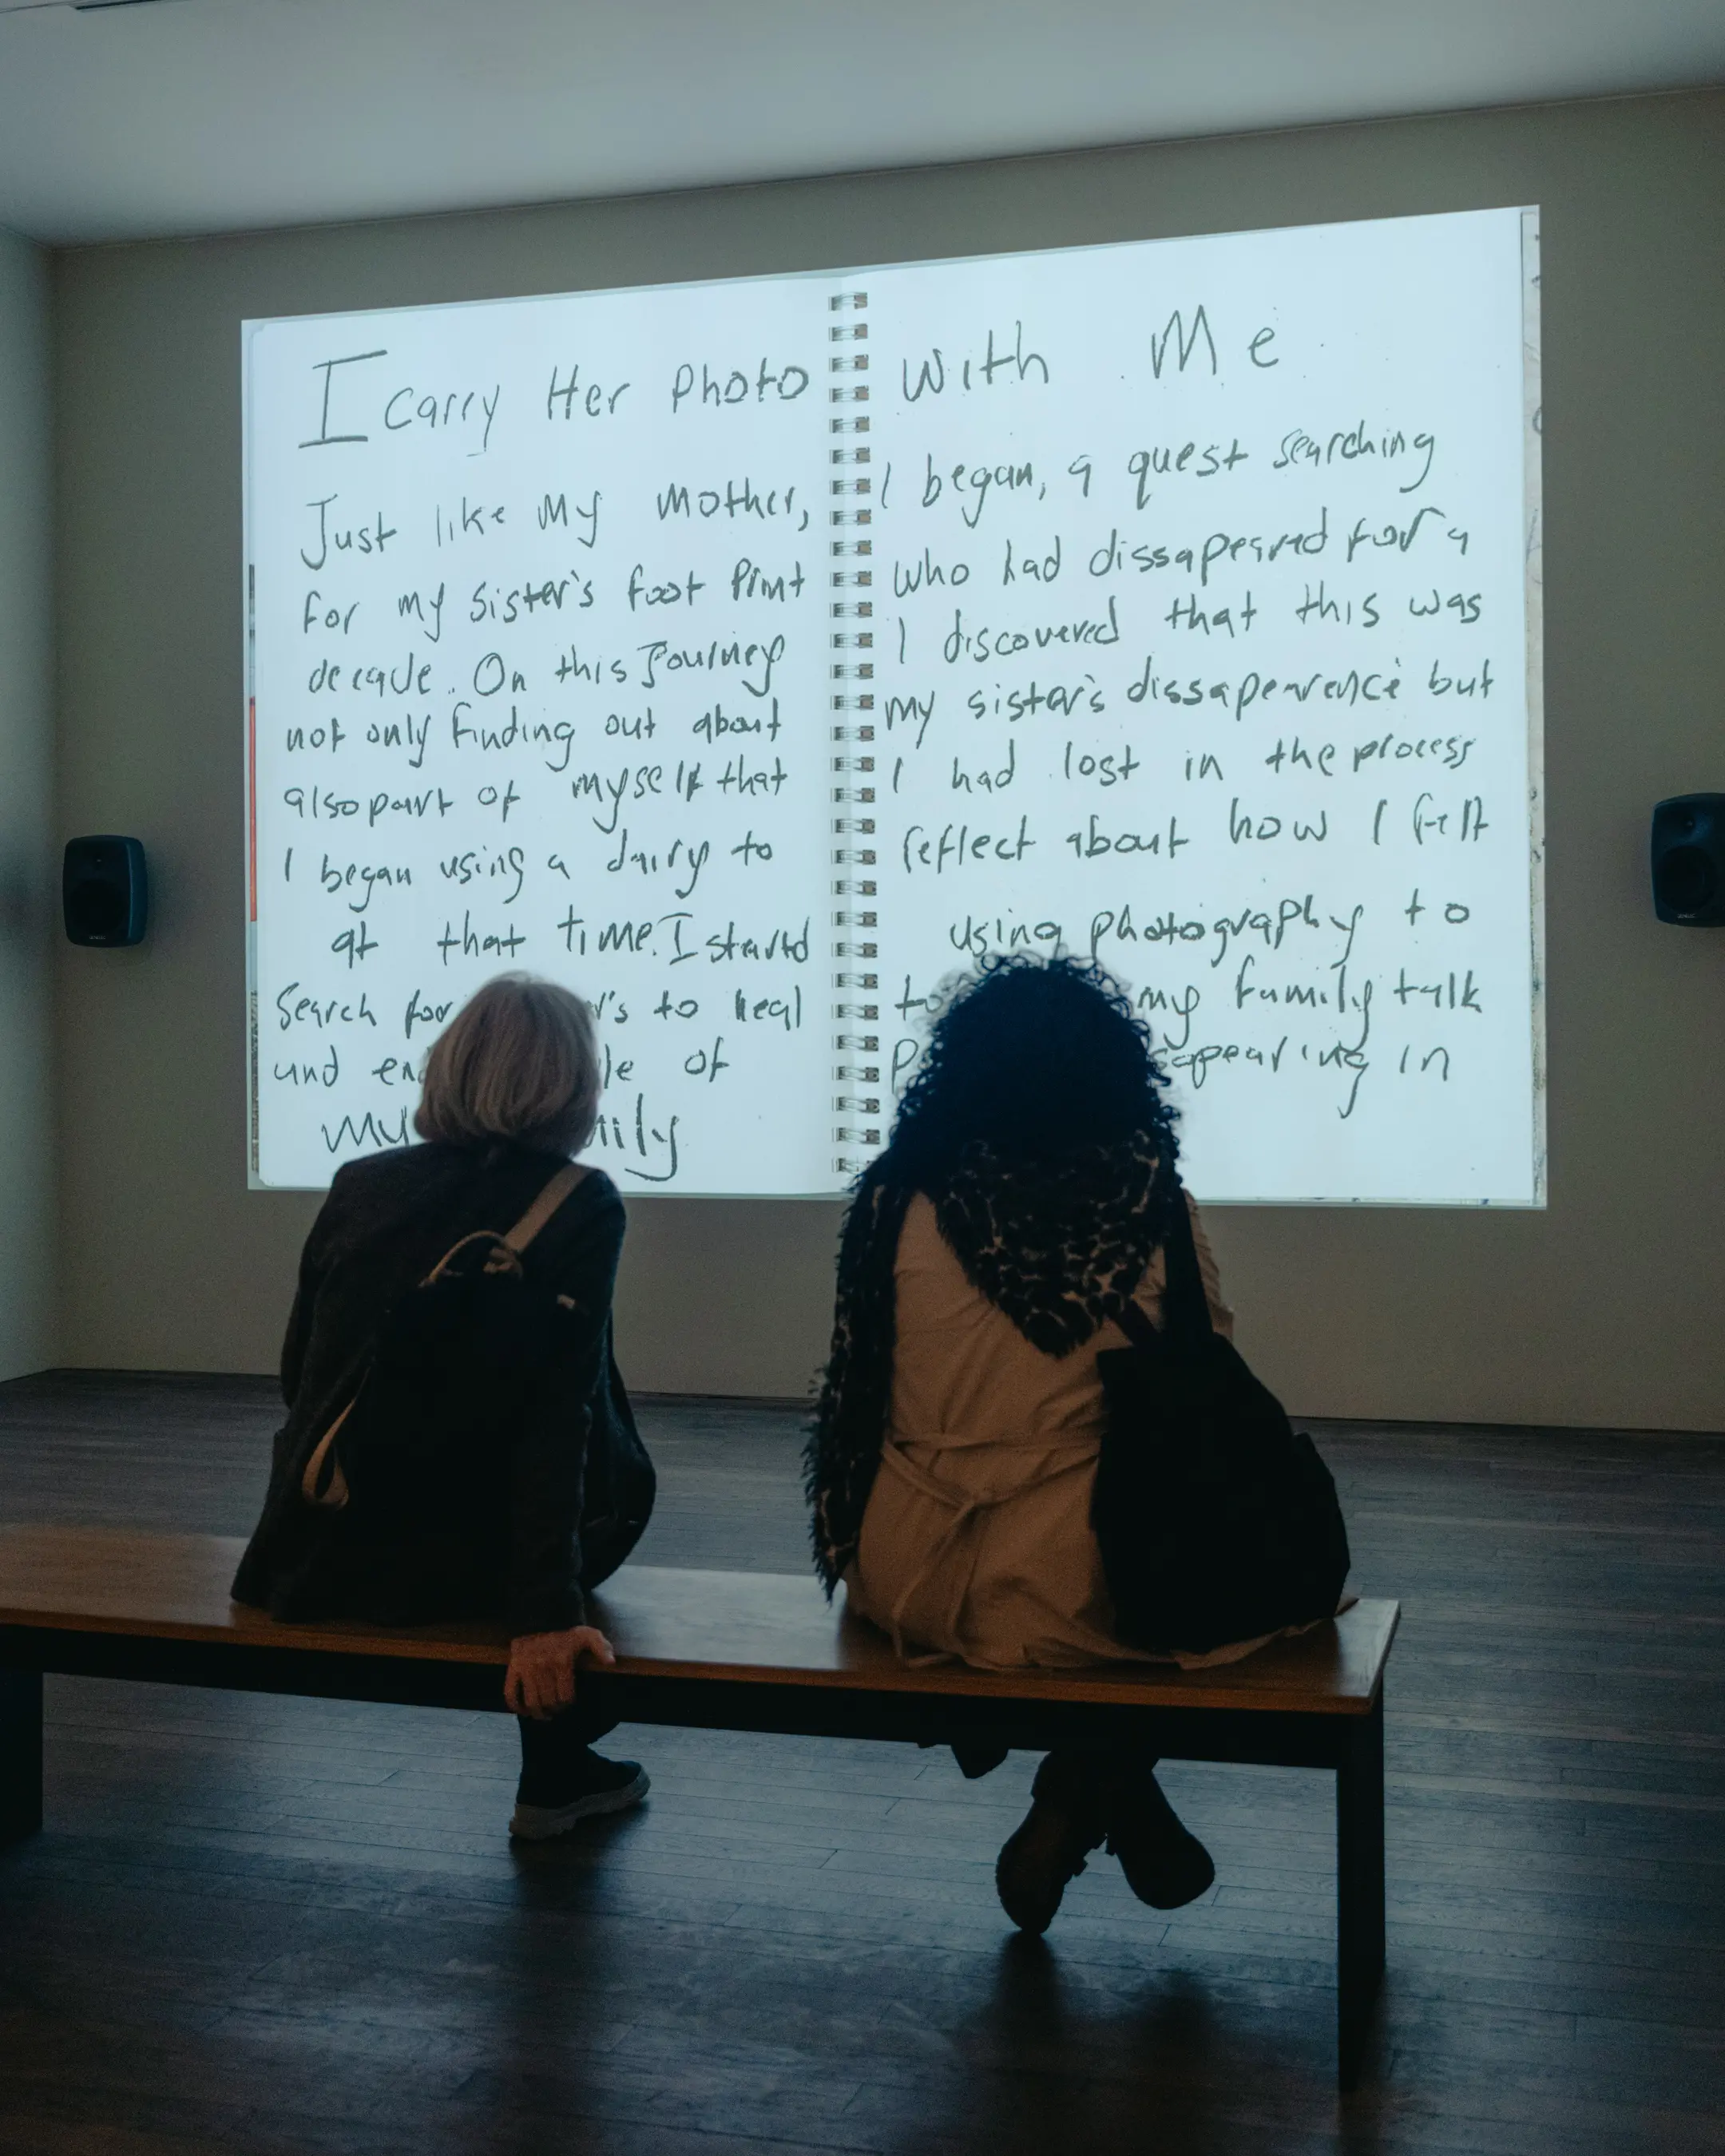 I carry Her Photo with Me
Just like My Mother, I began, a quest searching
For my sister's foot Print who had dissapeared for a
decade. On this Journey I discovered that this was
not only finding out about my sister's dissapearence but
also part of myself that I had lost in the process
I began using a dairy to reflect about how I felt
at that time. I started using photography to
Search for to heal my family talk
und of in
My